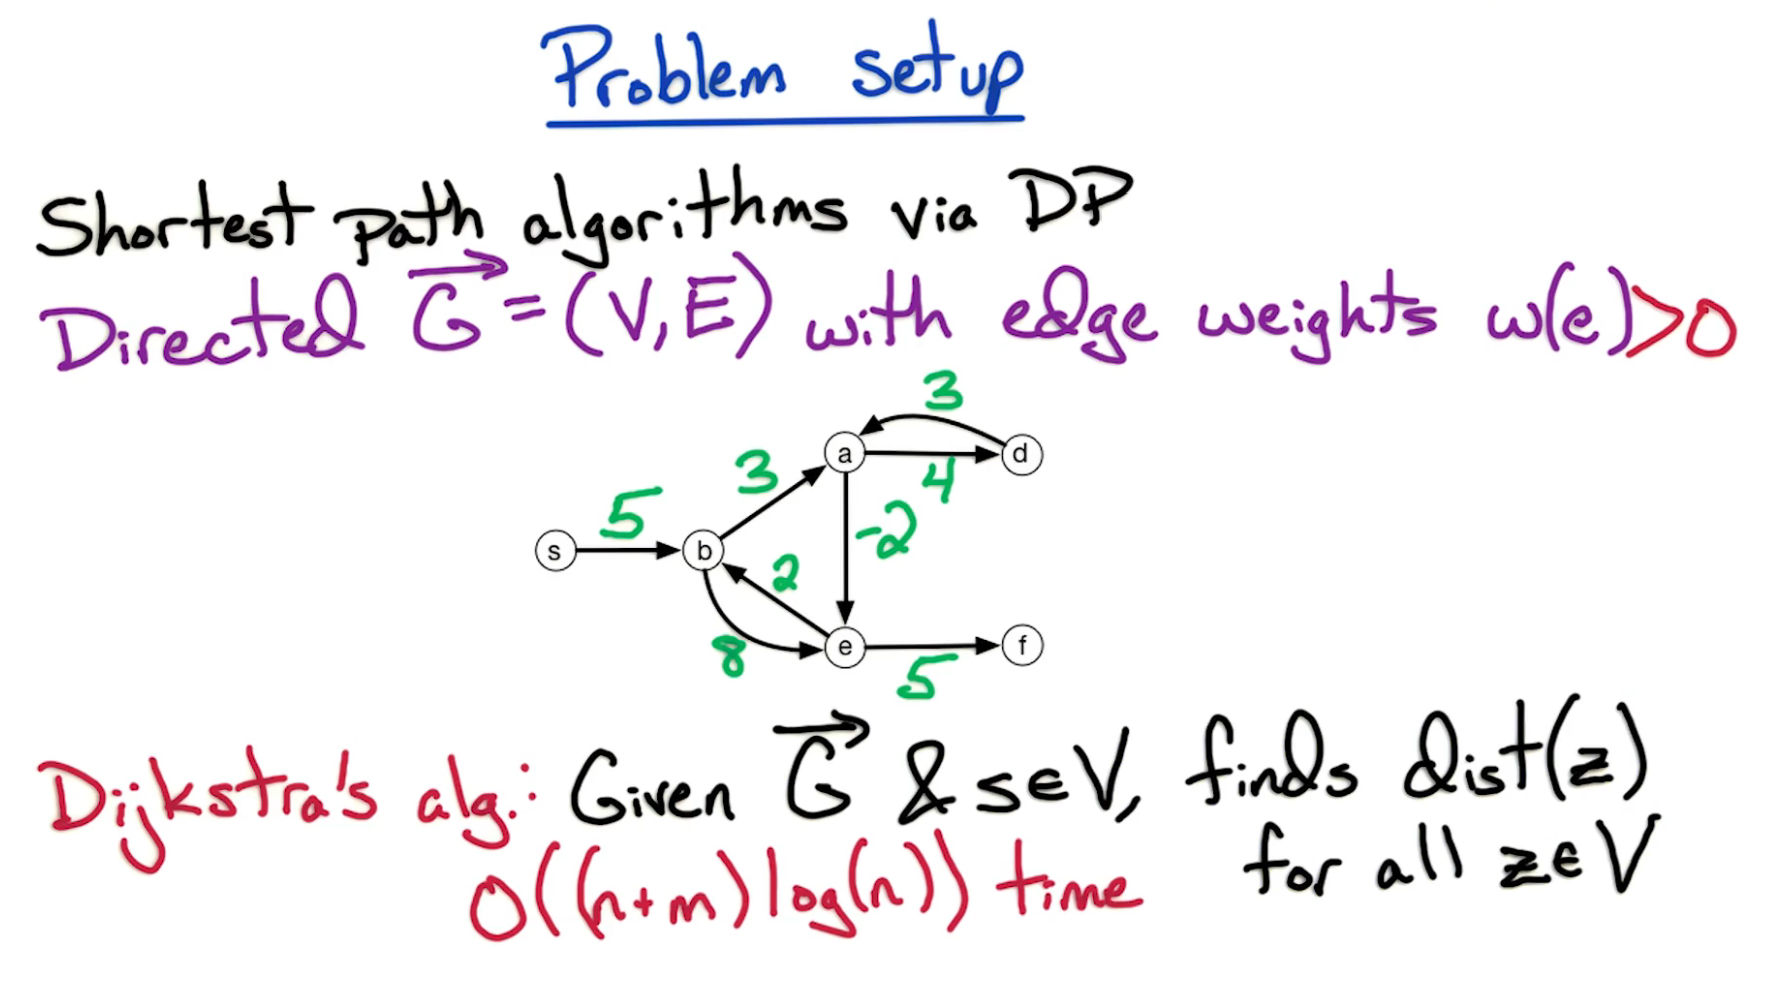 Problem setup
Shortest path algorithms via DP
Directed G⃗ = (V, E) with edge weights w(e) > 0
3
a
d
3
4
5
-2
s
b
2
8
e
f
5
Dijkstra's alg.: Given G⃗ & s∈V, finds dist(z)
for all z∈V
O((n+m)log(n)) time